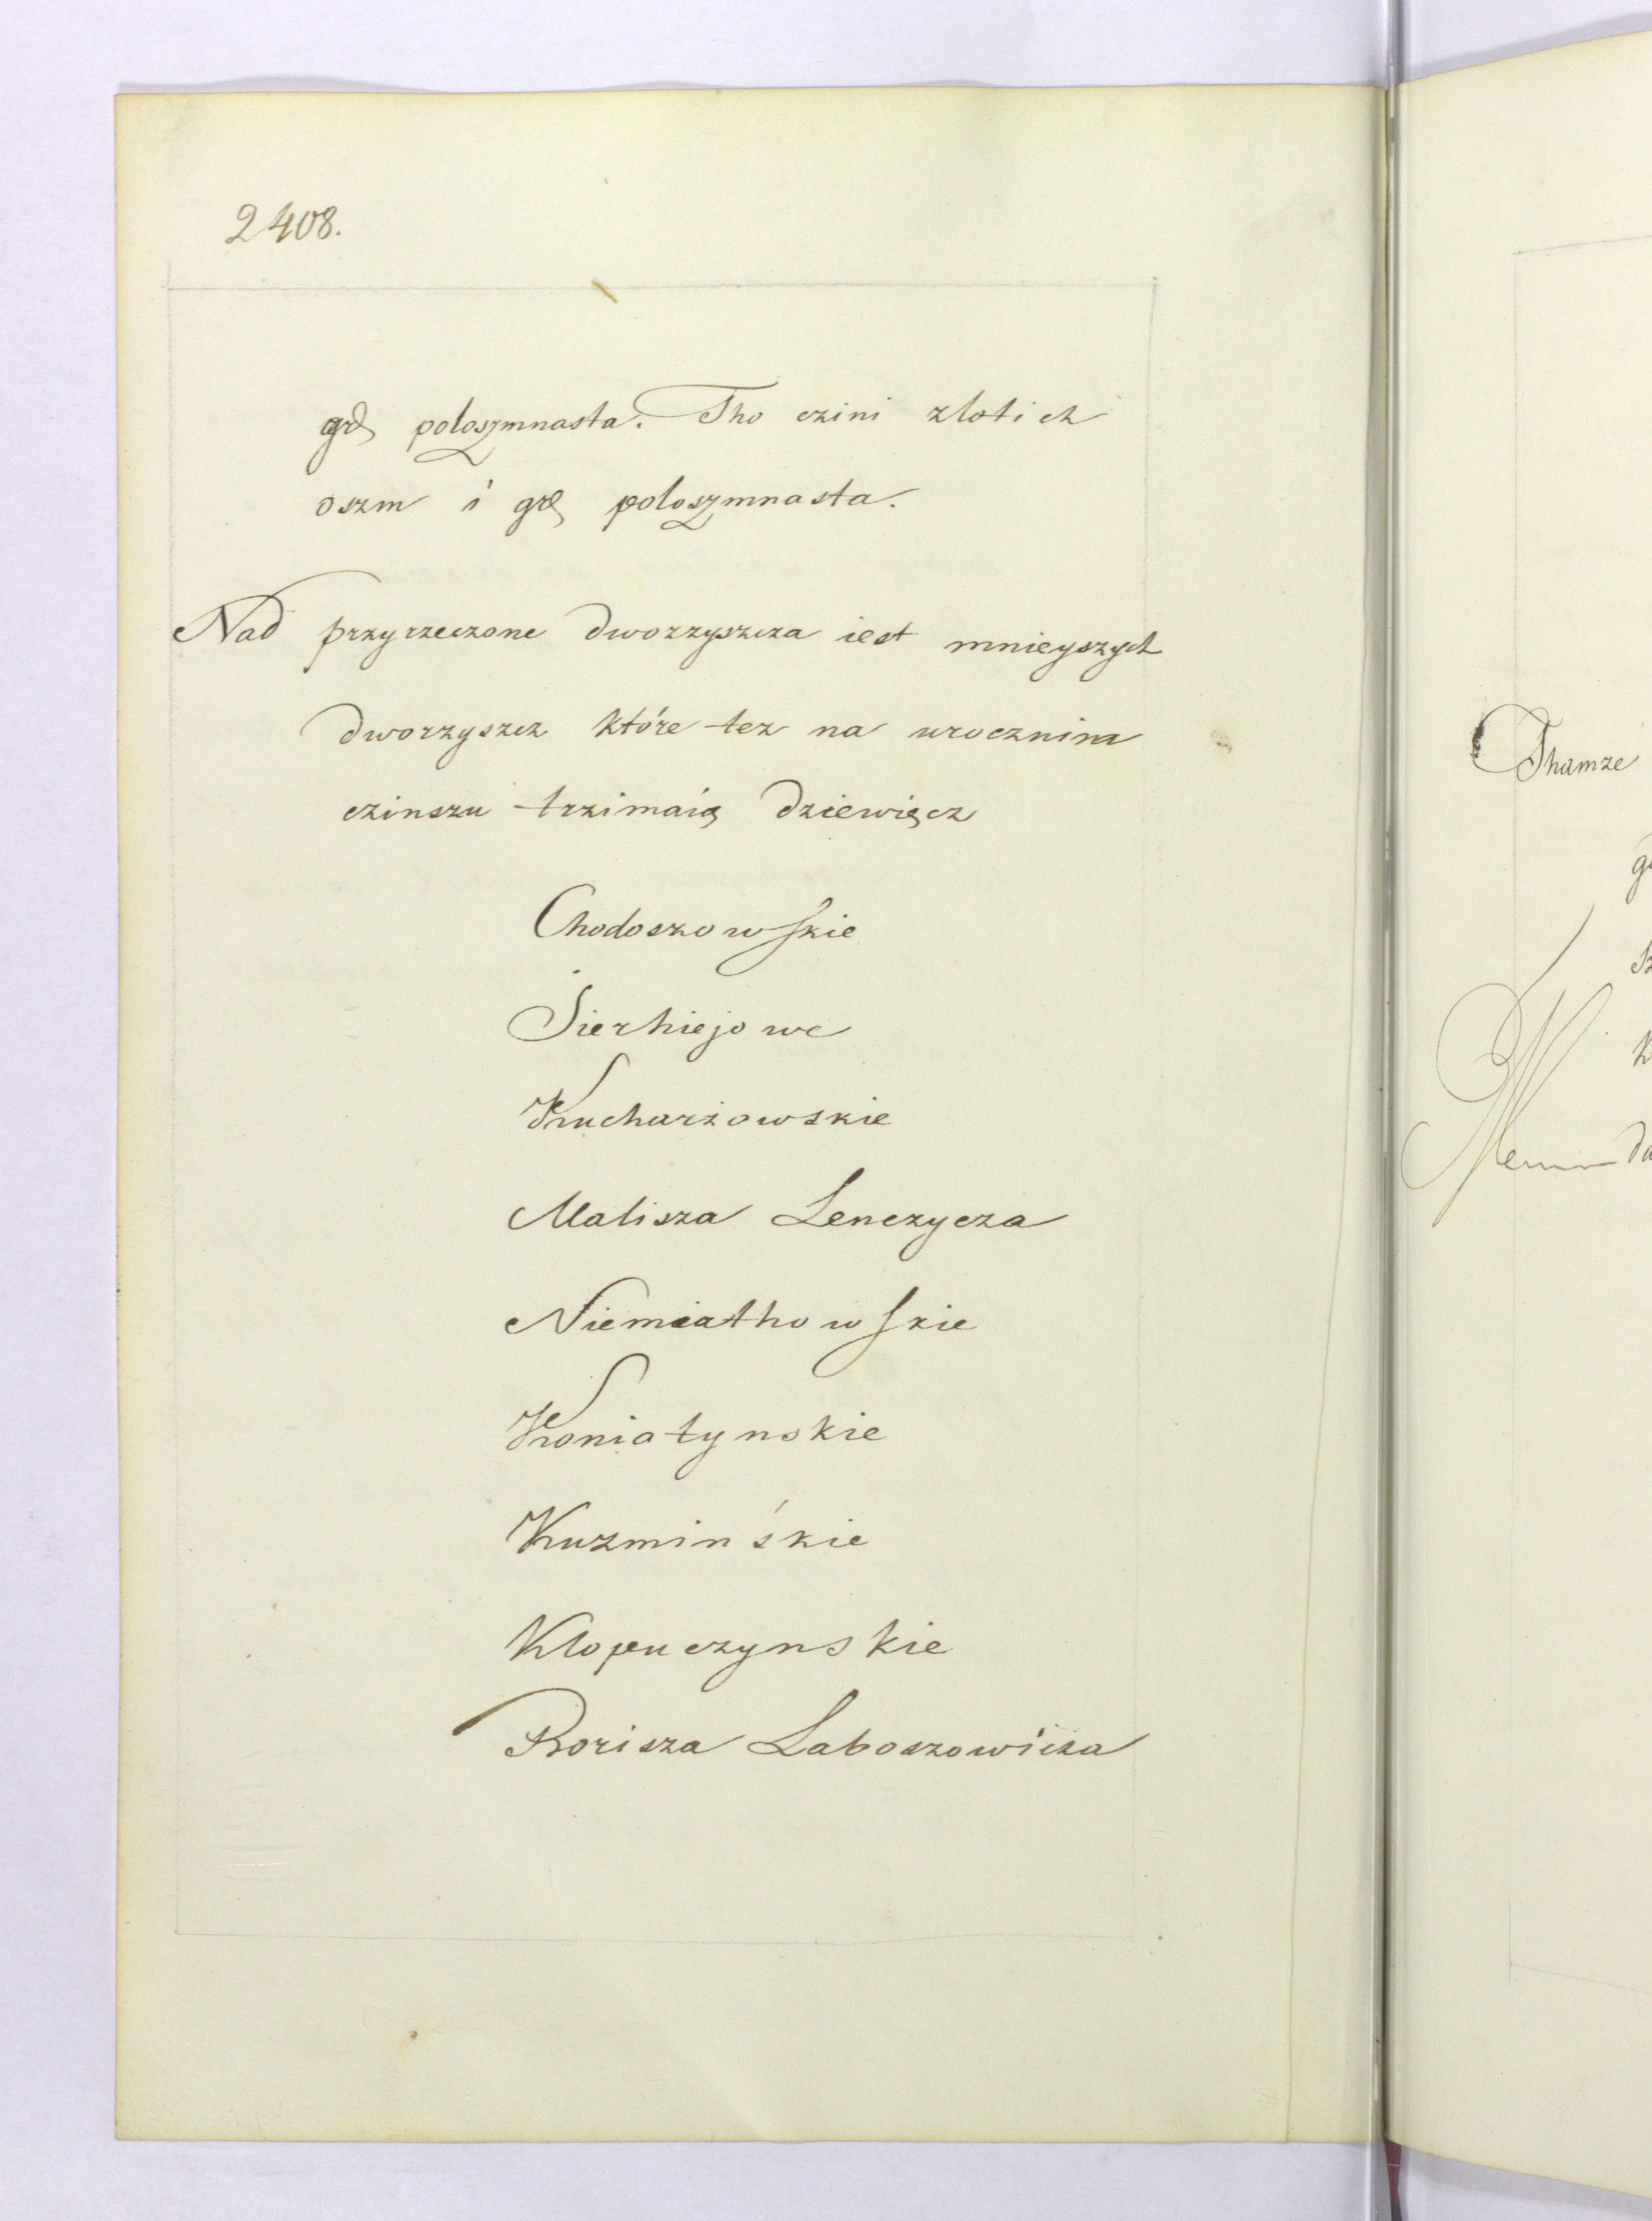 2408.
gr. poloszmnasta. Tho czini zlotich
oszm i gr. poloszmnasta.
Nad przyrzeczone dworzyszcza iest mnieyszych
dworzyszcz które tez na urocznim
czinszu trzimaią dziewięcz
Chodoszowskie
Sierhiejowe
Kucharżowskie
Malisza Lenczycza
Niemiathowskie
Koniatynskie
Kuzminśkie
Klopuczynskie
Borisza Laboszowicza
Thamze